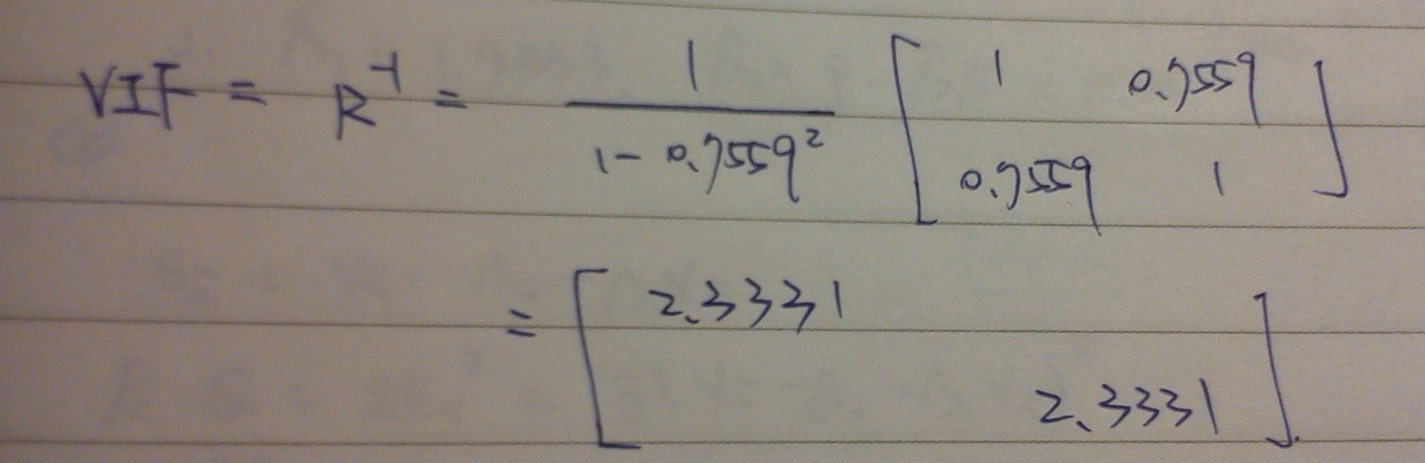 VIF = R⁻¹ = 1 / (1 - 0.7559²) [ 1 0.7559
0.7559 1 ]
= [ 2.3331
2.3331 ].